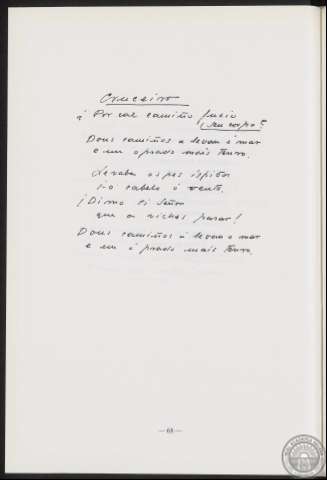 Cruceiro
¿ Por cal camiño fuxiu
(seu corpo?
Dous camiños a levan ó mar
e un ó prado máis tenro.
Levaba os pés ispidos
i-o cabelo ó vento.
¡Dimo ti Señor
que a viches pasar!
Dous camiños a levan o mar
e un ó prado mais tenro.
— 68 —